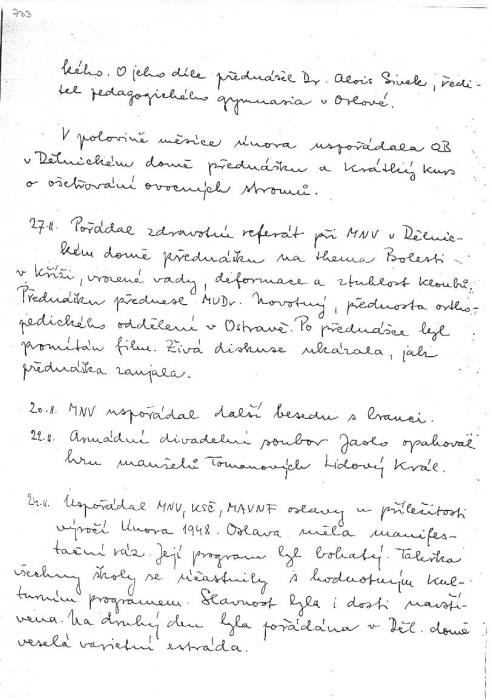 733
kého. O jeho díle přednášel Dr. Alois Sivek, ředi-
tel pedagogického gymnasia v Orlové.
V polovině měsíce února uspořádala OB
v Dělnickém domě přednášku a krátký kurs
o ošetřování ovocných stromů.
27.II. Pořádal zdravotní referát při MNV v Dělnic-
kém domě přednášku na thema Bolesti
v kříži, vrozené vady, deformace a ztuhlost kloubů.
Přednášku přednesl MUDr. Novotný, přednosta ortho-
pedického oddělení v Ostravě. Po přednášce byl
promítán film. Živá diskuse ukázala, jak
přednáška zaujala.
20.II. MNV uspořádal další besedu s branci.
22.II. Armádní divadelní soubor Jaslo opakoval
hru manželů Tomanových Lidový král.
24.II. Uspořádal MNV, KSČ, MAVNF oslavy u příležitosti
výročí Února 1948. Oslava měla manifes-
tační ráz. Její program byl bohatý. Takřka
všechny školy se účastnily s hodnotným kul-
turním programem. Slavnost byla i dosti navští-
vena. Na druhý den byla pořádána v Děl. domě
veselá varietní estráda.